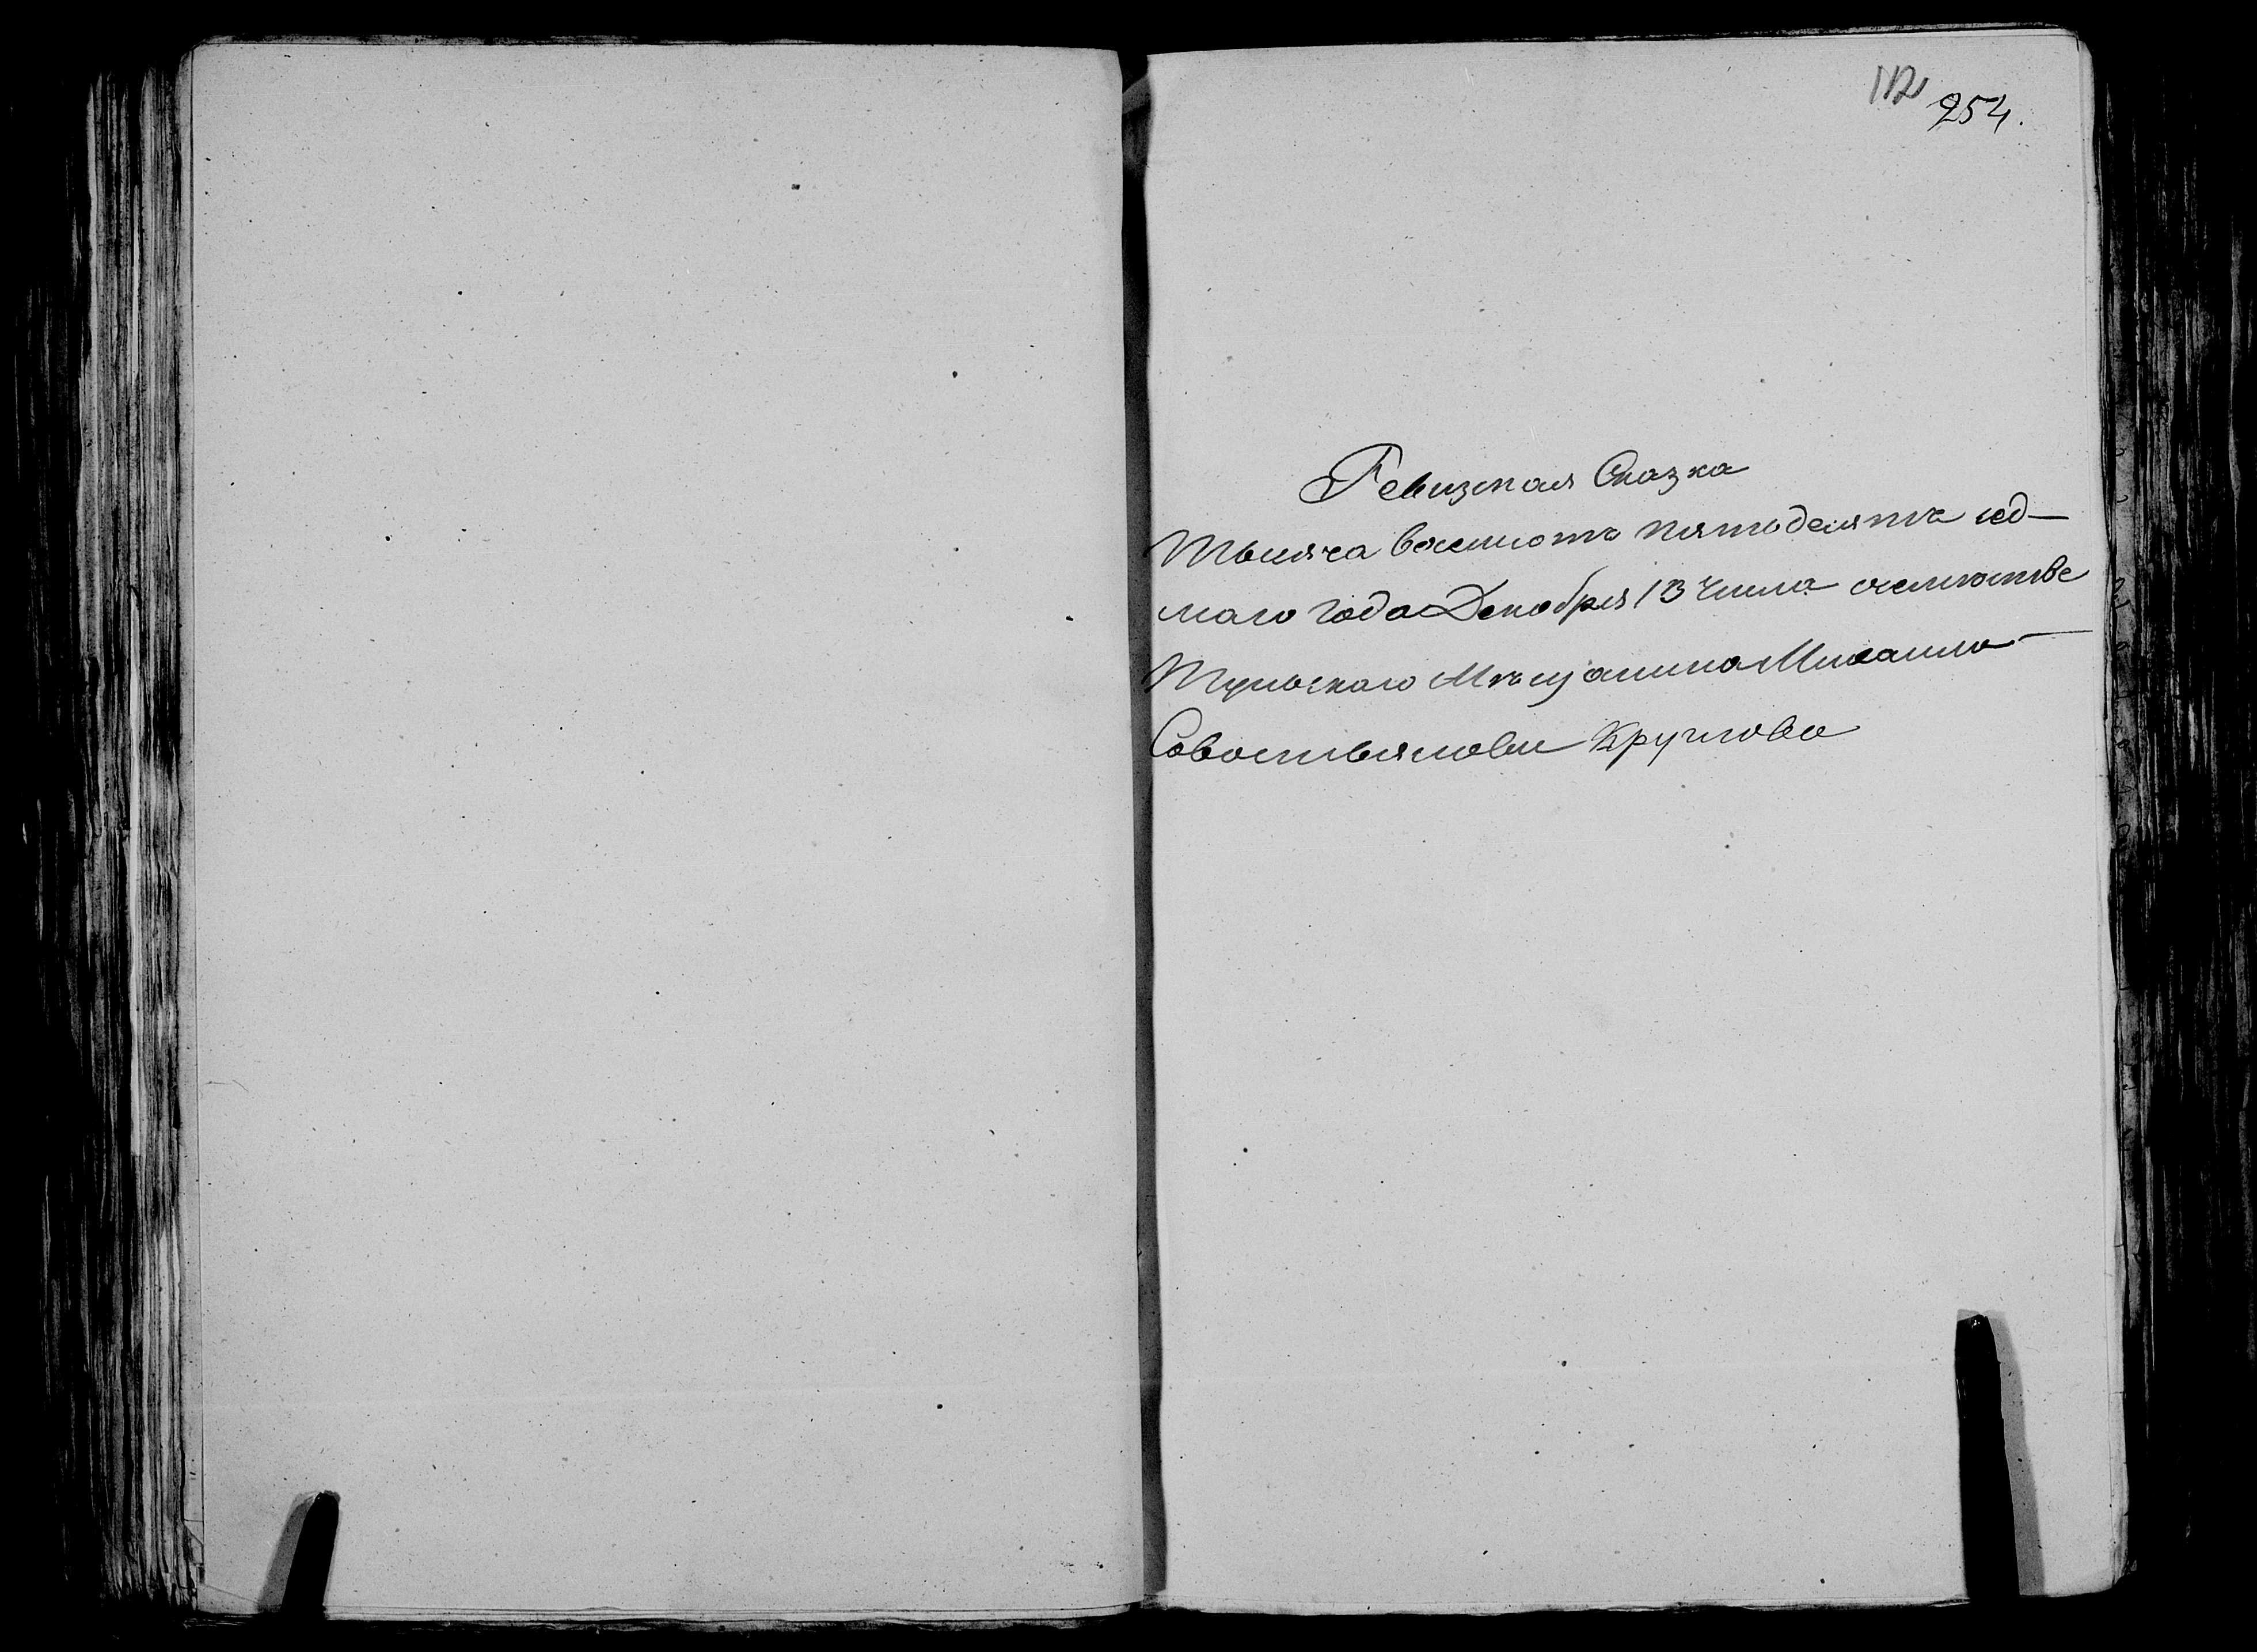 112
254.
Ревизская Сказка
Тысяча восемьсотъ пятьдесятъ сед-
маго года Декабря 13 числа семействе
Тульскаго Мѣщанина Михаила
Савостьянова Круглова